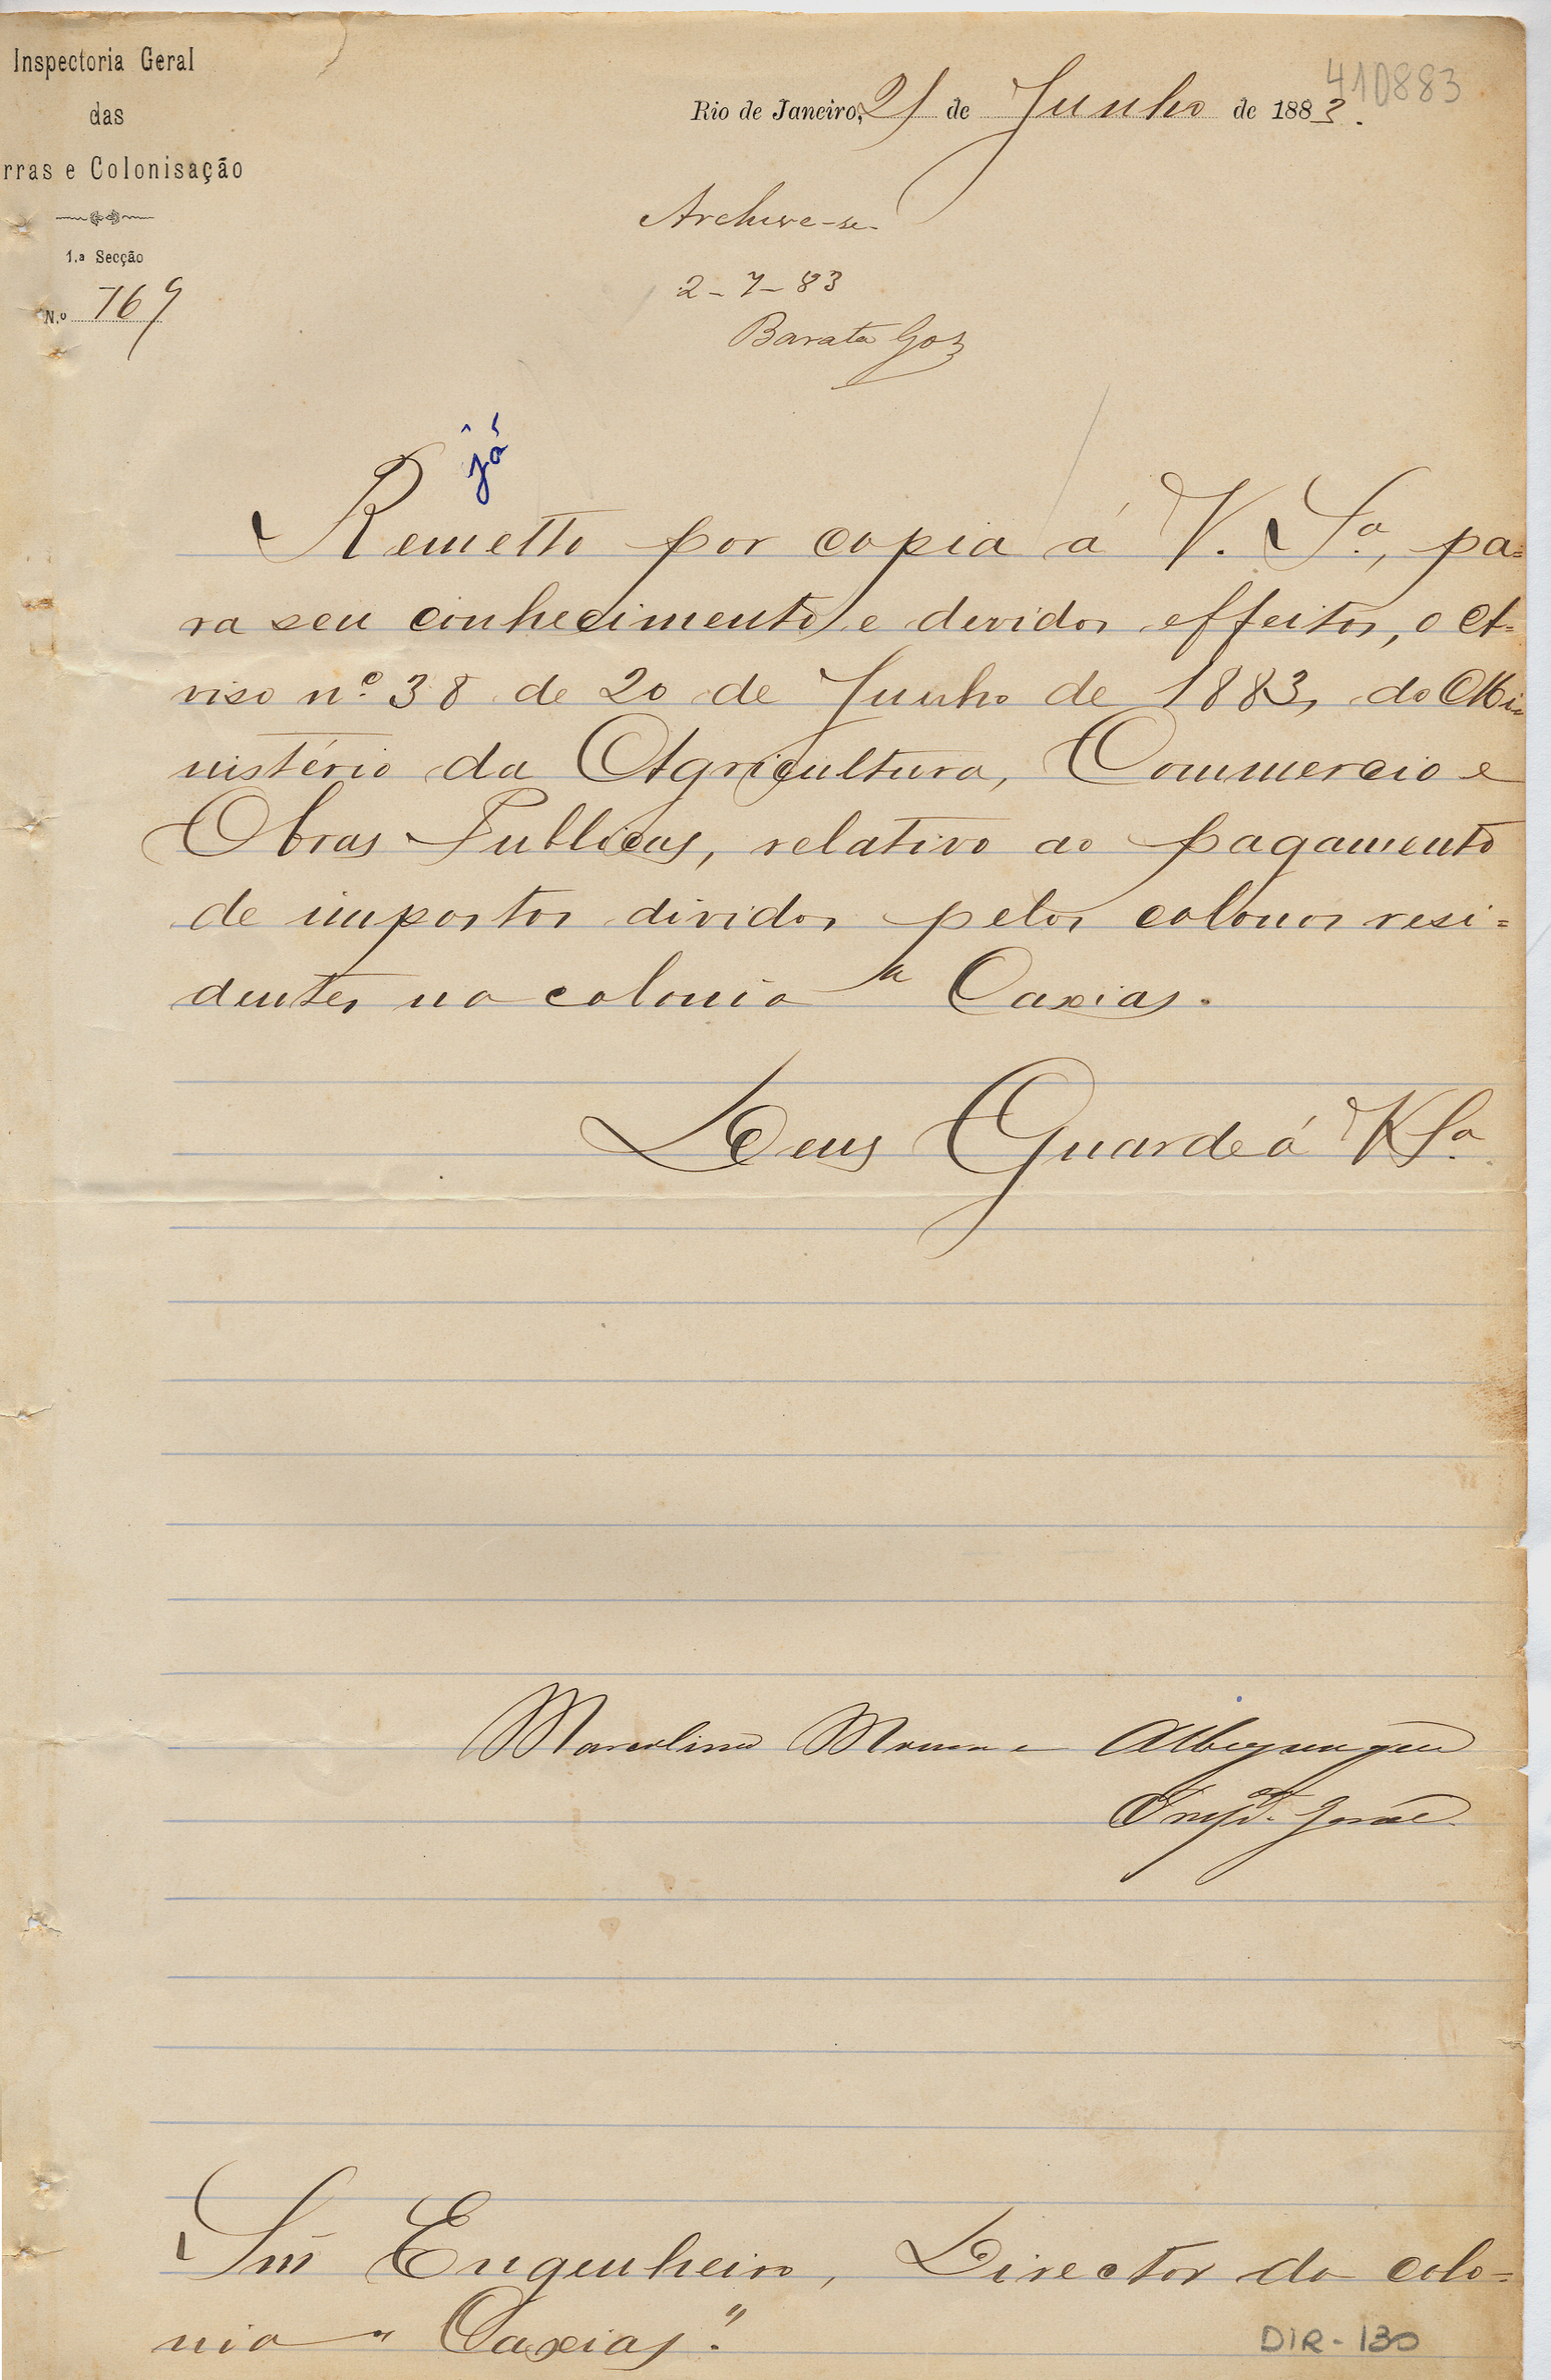 Inspectoria Geral
das
rras e Colonisação
1.ª Secção
N.º 769
410883
Rio de Janeiro, 21 de Junho de 1883.
Archive-se
2-7-83
Barata Goz
já
Remetto por copia á V. Sª, pa=
ra seu conhecimento e devidos effeitos, o A=
viso nº 38 de 20 de Junho de 1883, do Mi=
nistério da Agricultura, Commercio e
Obras Publicas, relativo ao pagamento
de impostos dividos pelos colonos resi=
dentes na colonia " Caxias.
Deus Guarde á V Sª.
Marcolino Moura e Albuquerque
Inspor. geral
Snr Engenheiro, Director da colo=
nia " Caxias".
DIR-130